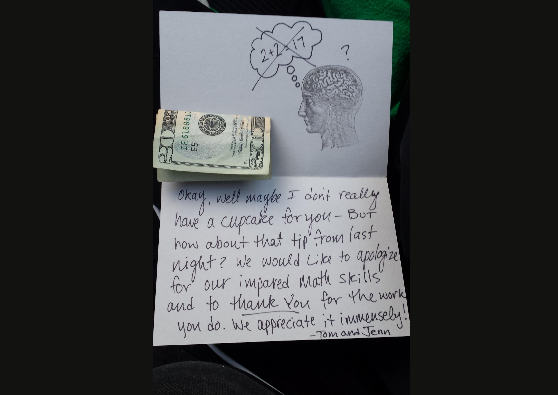 2+2=17
?
20
Okay, well maybe I don't really
have a cupcake for you - But
how about that tip from last
night? We would Like to apologize
for our impared Math skills
and to thank You for the work
you do. We appreciate it immensely!
-Tom and Jenn